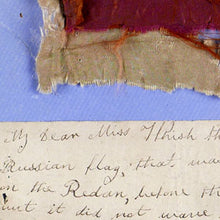 My dear Miss Thrish th
Russian flag, that wa
on the Redan, before th
but it did not wave